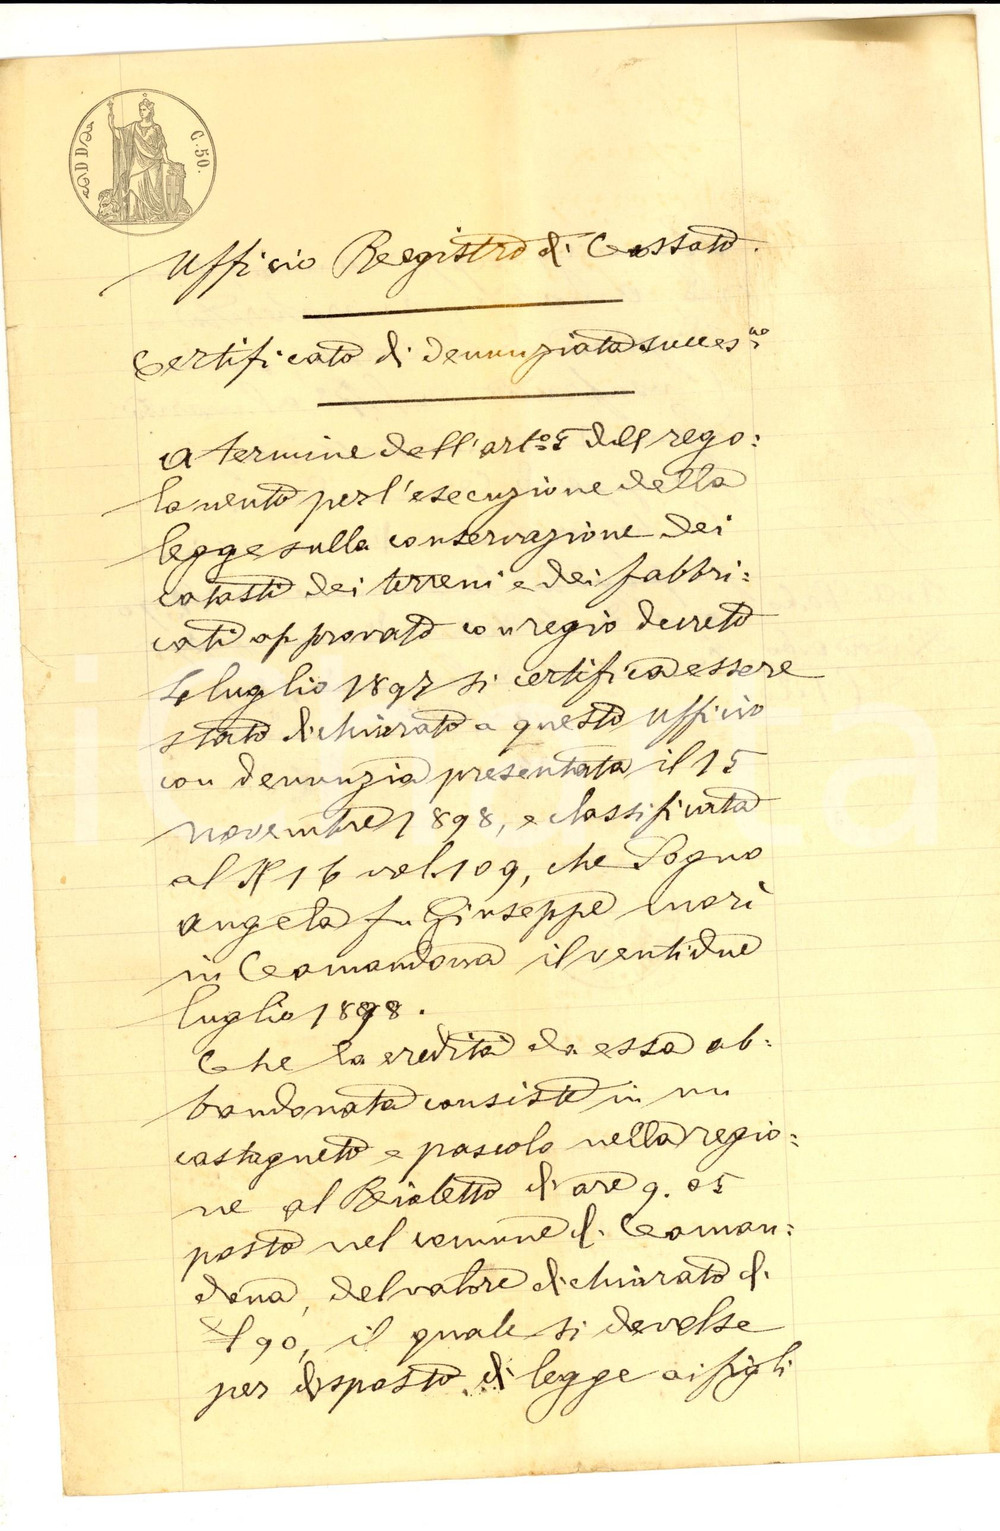 C. 50.
Ufficio Registro di Cossato.
Certificato di denunziata succes.ne
A termine dell'art.o 5 del rego:
lamento per l'esecuzione della
legge sulla conservazione dei
catasti dei terreni e dei fabbri:
cati approvato con regio decreto
4 luglio 1897 si certifica essere
stato dichiarato a questo ufficio
con denunzia presentata il 15
novembre 1898, e classificata
al N 16 vol. 109, che Sogno
Angela fu Giuseppe morì
in Camandona il ventidue
luglio 1898.
Che la eredità da essa ab:
bandonata consiste in un
castagneto e pascolo nella regio:
ne al Rialetto di are 9.05
posto nel comune di Caman:
dona, del valore dichiarato di
£ 90, il quale si devolse
per disposto di legge ai figli